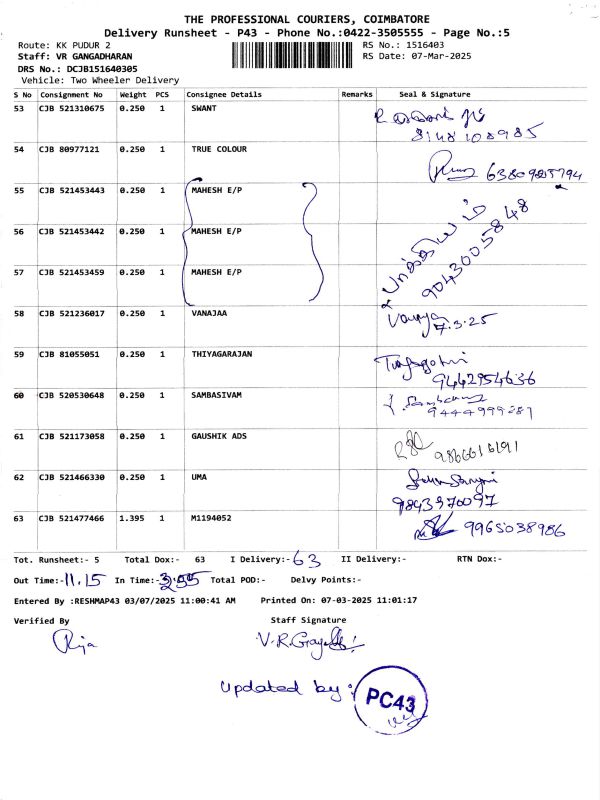 THE PROFESSIONAL COURIERS, COIMBATORE
Delivery Runsheet - P43 - Phone No.:0422-3505555 - Page No.:5
Route: KK PUDUR 2 RS No.: 1516403
Staff: VR GANGADHARAN RS Date: 07-Mar-2025
DRS No.: DCJB151640305
Vehicle: Two Wheeler Delivery
S No Consignment No Weight PCS Consignee Details Remarks Seal & Signature
53 CJB 521310675 0.250 1 SWANT
8148108985
54 CJB 80977121 0.250 1 TRUE COLOUR
55 CJB 521453443 0.250 1 MAHESH E/P
56 CJB 521453442 0.250 1 MAHESH E/P
57 CJB 521453459 0.250 1 MAHESH E/P
பாக்கியம்
9043005848
58 CJB 521236017 0.250 1 VANAJAA
7.3.25
59 CJB 81055051 0.250 1 THIYAGARAJAN
9442954636
60 CJB 520530648 0.250 1 SAMBASIVAM
61 CJB 521173058 0.250 1 GAUSHIK ADS
62 CJB 521466330 0.250 1 UMA
9843970097
63 CJB 521477466 1.395 1 M1194052 9965038986
Tot. Runsheet:- 5 Total Dox:- 63 I Delivery:- 63 II Delivery:- RTN Dox:-
Out Time:- 11.15 In Time:- 3.55 Total POD:- Delvy Points:-
Entered By :RESHMAP43 03/07/2025 11:00:41 AM Printed On: 07-03-2025 11:01:17
Verified By Staff Signature
Updated by : PC43